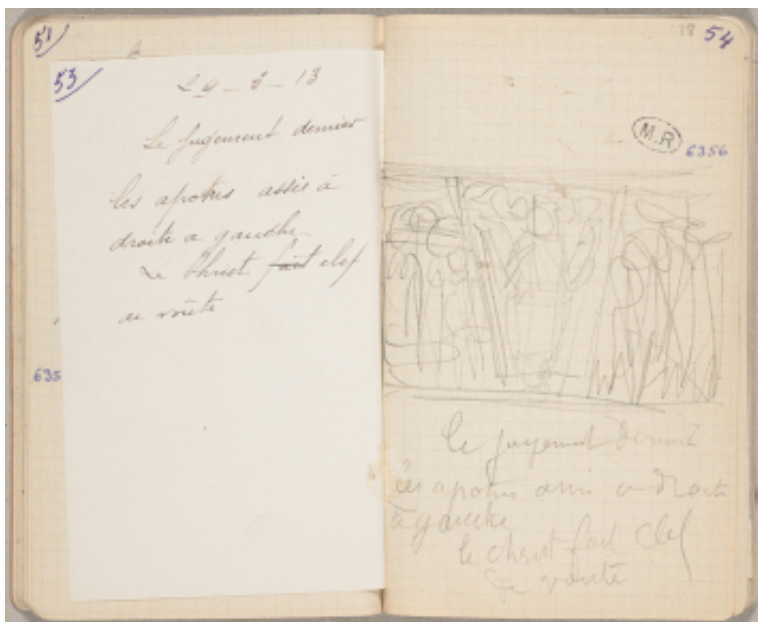 51
53
29 - 5 - 13
Le jugement dernier
les apotres assis à
droite a gauche
Le Christ fait clef
de voûte
635
18 54
M.R
6356
le jugement dernier
les apotres assis a droite
à gauche
le christ fait clef
de voute